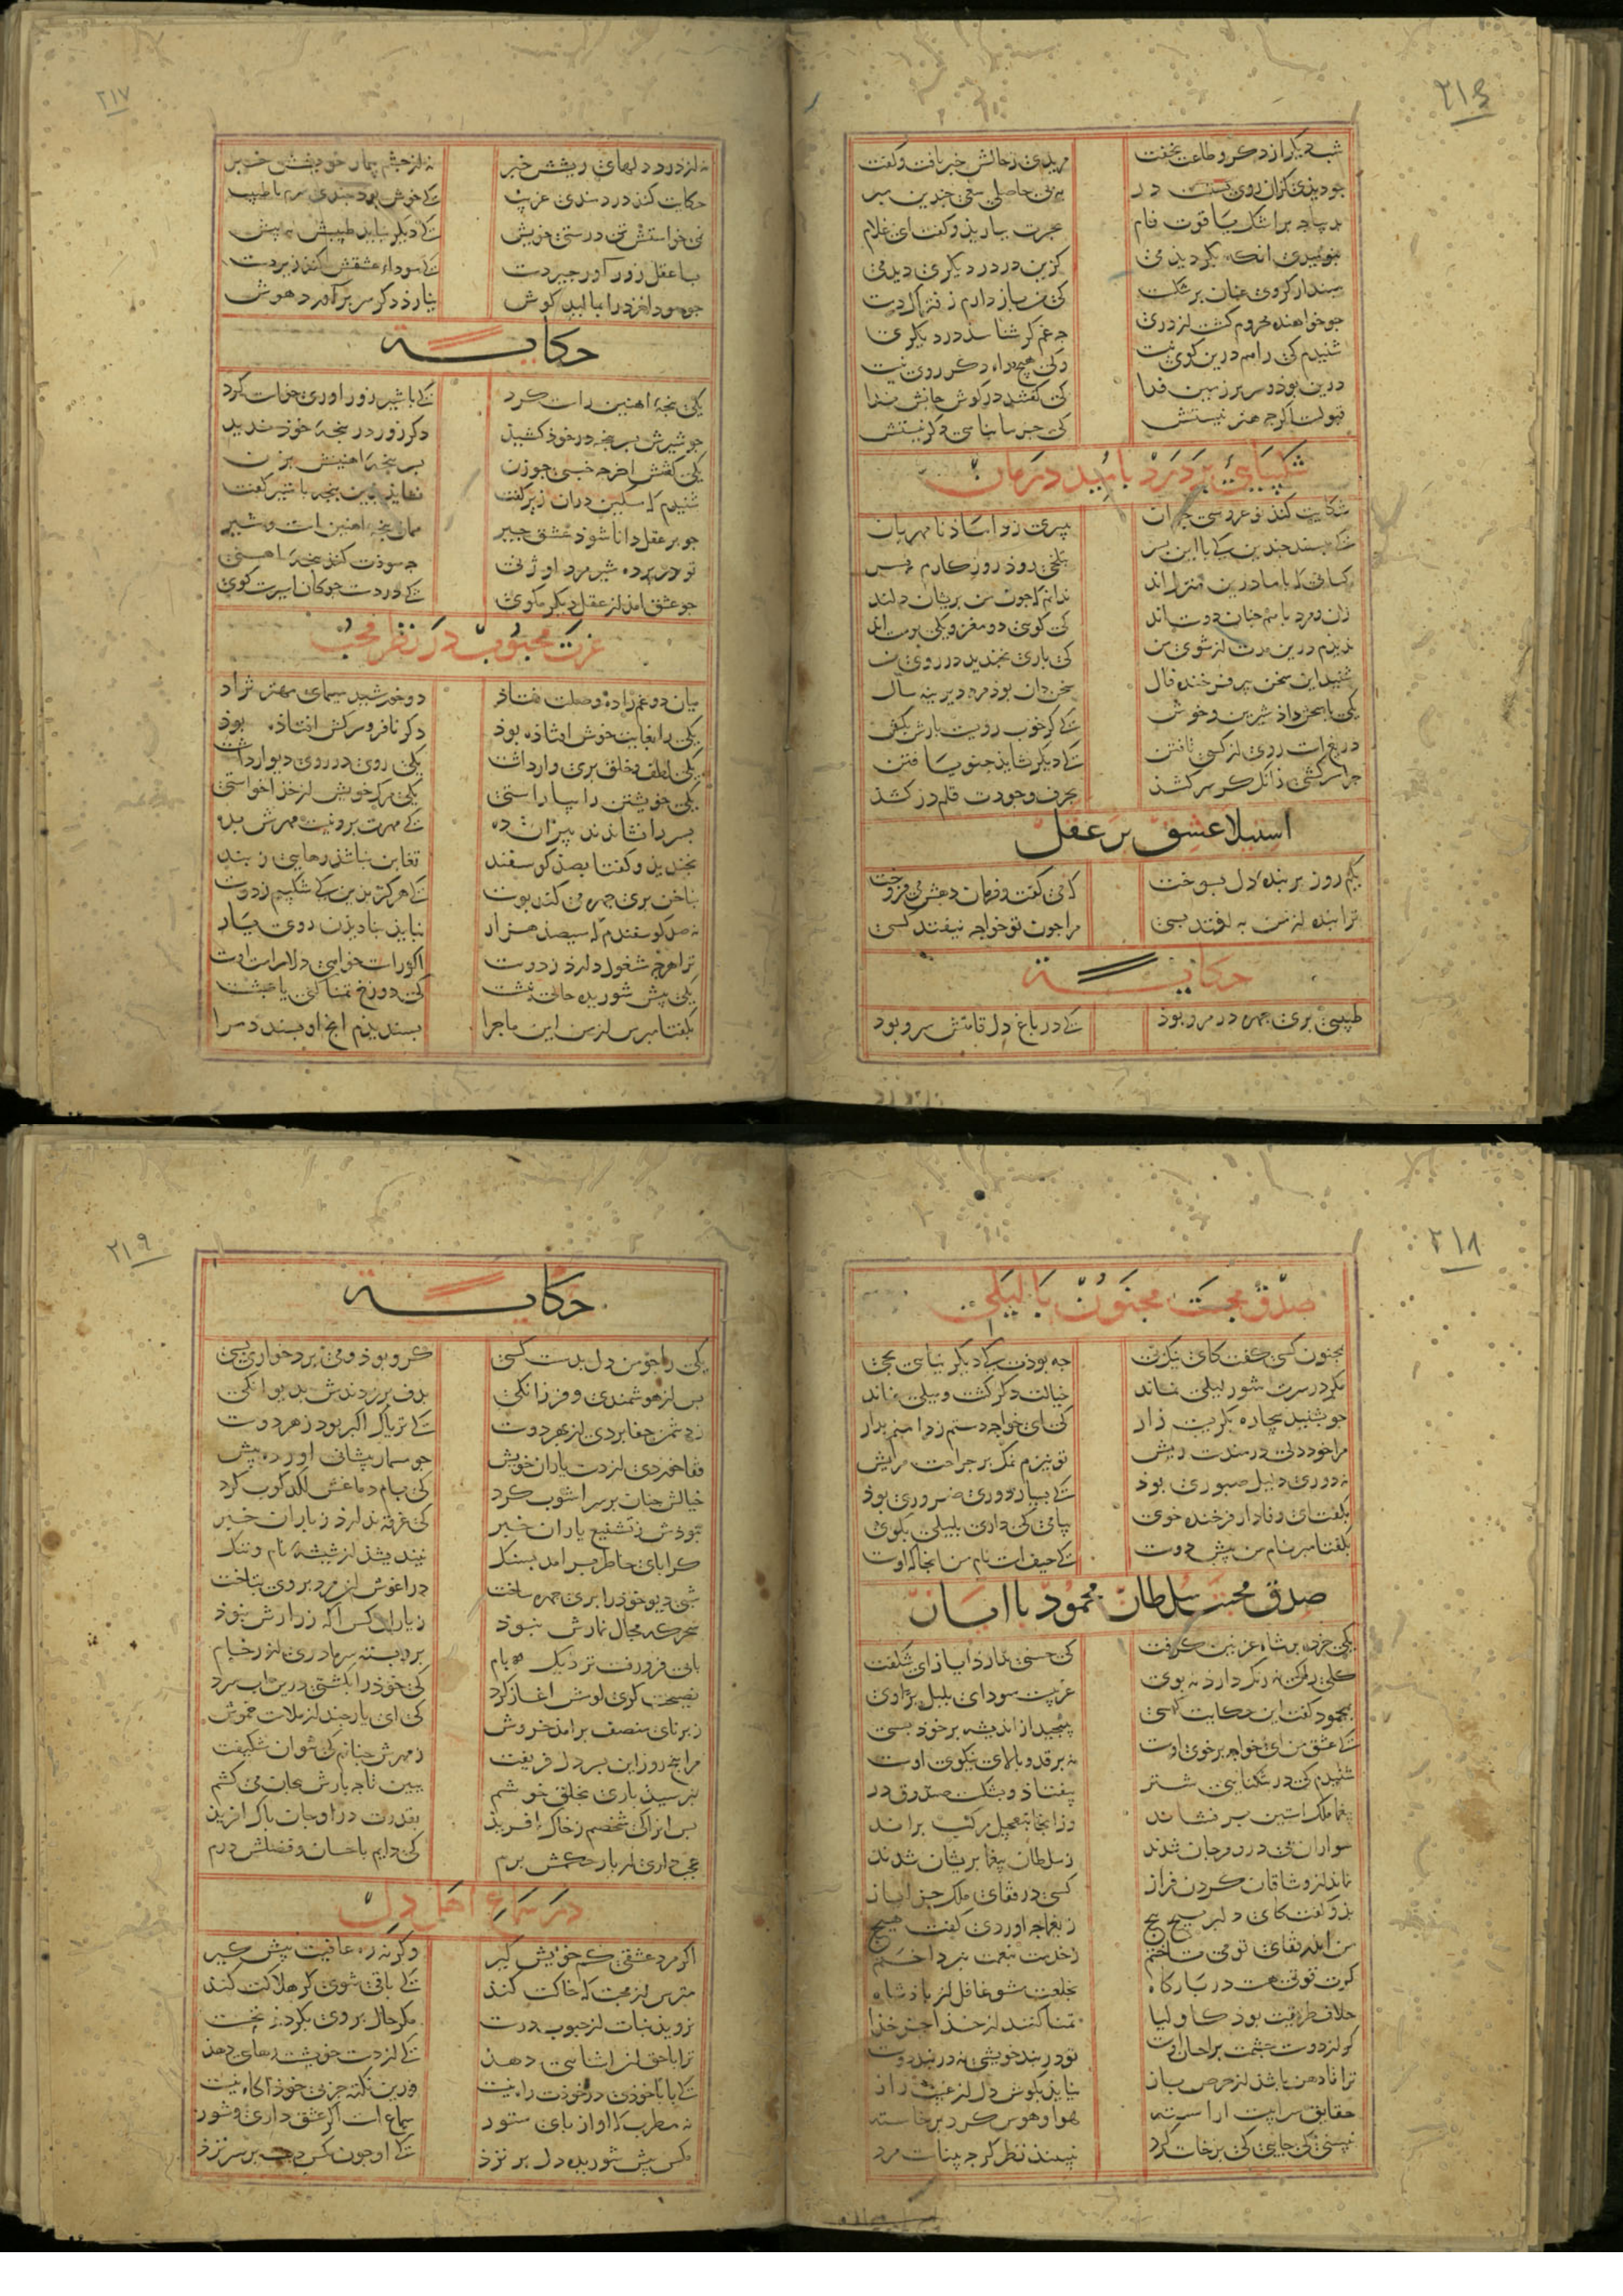 ۲۱۶
شب دیکر از ذکر و طاعت نخفت مریدی ز حالش خبر یافت و کفت
جو دیدی کزان روی بستست در به بی حاصلی سعی جندین مبر
بدیباجه بر اشک یاقوت فام بحسرت ببارید و کفت ای غلام
بنومیدی انکه بکردیدمی کزین در در دیکری دیدمی
مپندار کر وی عنان بر شکست کی من باز دارم ز فتراک دست
جو خواهنده محروم کشت از دری جه غم کر شناسد در دیکری
شنیدم کی راهم درین کوی نیست ولی هیچ راه دکر روی نیست
درین بود و سر بر زمین فدا کی کفتند در کوش جانش ندا
قبولست اکر جه هنر نیستش کی جز ما پناهی دکر نیستش
شکیبایی بر درد بامید درمان
شکایت کند نو عروسی جوان بپیری ز داماد نامهربان
کی مپسند جندین کی با این پسر بتلخی رود روزکارم بسر
کسانی که با ما درین منزل اند ندانم که جون من پریشان دلند
زن و مرد با هم جنان دوست اند کی کویی دو مغز و یکی پوست اند
ندیدم درین مدت از شوی من کی باری بخندید در روی من
شنید این سخن پیر فرخنده فال سخن دان بود مرد دیرینه سال
یکی پاسخش داد شیرین و خوش کی کر خوب رویست بارش بکش
دریغ است روی از کسی تافتن کی دیکر نشاید جنو یافتن
جرا سرکشی زانک کر سر کشد بحرف وجودت قلم درکشد
استیلا عشق بر عقل
یکم روز بر بنده دل بسوخت که می کفت و فرمان دهش می فروخت
ترا بنده از من به اوفتد بسی مرا جون تو خواجه نیفتد کسی
حکایـــة
طبیبی بری جهره در مرو بوذ کی در باغ دل قامتش سرو بود
۲۱۷
نه از درد دلهای ریشش خبر نه از جشم بیمار خویشش خبر
حکایت کند دردمندی غریب کی خوش بود جندی سرم با طبیب
نمی خواستم تن درستی خویش کی دیکر نیاید طبیبم بپیش
بسا عقل زور آور جیردست کی سوداء عشقش کند زیردست
جو سودا خرد را بمالید کوش نیارد دکر سر برآورد هوش
حکایـــة
یکی پنجه اهنین راست کرد کی با شیر زور اوری خواست کرد
جو شیرش بسر پنجه در خود کشید دکر زور در پنجه خوذ ندید
یکی کفتش اخر جه خسبی جو زن بسر پنجه اهنینش بزن
شنیدم که مسکین دران زیر کفت نشاید بدین پنجه با شیر کفت
جو بر عقل دانا شود عشق جیر همان پنجه اهنین است و شیر
تو در پنجه شیر مرد اوژنی جه سودت کند پنجه اهنی
جو عشق امد از عقل دیکر مکوی کی در دست جوکان اسیرست کوی
عزت محبوب در نظر محب
میان دو عم زاده وصلت فتاذ دو خورشید سیمای مهتر نژاد
یکی را بغایت خوش افتاذه بود دکر نافر و سرکش افتاذه بوذ
یکی لطف و خلق بری وار داشت یکی روی در روی دیوار داشت
یکی خویشتن را بیاراستی یکی مرک خویش از خذا خواستی
پسر را نشاندند پیران ده کی مهرت برو نیست مهرش بده
بخندید و کفتا بصد کوسفند تغابن نباشد رهایی ز بند
بناخن بری جهره می کند پوست کی هرکز بدین کی شکیبم ز دوست
نه صد کوسفندم که سیصد هزار نباید بنادیدن روی یار
ترا هرجه مشغول دارد ز دوست اکر راست خواهی دلارامت اوست
یکی پیش شوریده حالی نبشت کی دوزخ تمنا کنی یا بهشت
بکفتا مپرس از من این ماجرا پسندیدم انج او پسندد مرا
۲۱۸
صدق محبت مجنون با لیلی
بمجنون کسی کفت کای نیک پی جه بوذت کی دیکر نیایی بحی
مکر در سرت شور لیلی نماند خیالت دکر کشت و میلی نماند
جو بشنید بیجاره بکریست زار کی ای خواجه دستم ز دامن بدار
مرا خود دلی دردمندست ریش تو نیزم نمک بر جراحت مریش
نه دوری دلیل صبوری بوذ کی بسیار دوری ضروری بوذ
بکفت ای وفادار فرخنده خوی پیامی کی داری بلیلی بکوی
بکفتا مبر نام من پیش دوست کی حیف است نام من انجا که اوست
صدق محبت سلطان محمود با ایاز
یکی خرده بر شاه غزنین کرفت کی حسنی ندارد ایاز ای شکفت
کلی را کی نه رنک دارد نه بوی غریبست سودای بلبل بر اوی
بمحمود کفت این حکایت کسی بپیجید از اندیشه بر خود بسی
کی عشق من ای خواجه بر خوی اوست نه بر قد و بالای نیکوی اوست
شنیدم کی در تنکنایی شتر بیفتاد و بشکست صندوق در
بیغما ملک استین برفشاند وزانجا بتعجیل مرکب براند
سواران پی در و مرجان شدند ز سلطان بیغما پریشان شدند
نماند از وشاقان کردن فراز کسی در قفای ملک جز ایاز
بدو کفت کای دلبر پیچ پیچ ز یغما جه اوردی کفت هیچ
من اندر قفای تو می تاختم ز خدمت بنعمت نپرداختم
کرت قربتی هست در بارکاه بخلعت مشو غافل از پاذشاه
خلاف طریقت بود کاولیا تمنا کنند از خذا جز خذا
کر از دوست جشمت بر احسان اوست تو در بند خویشی نه در بند دوست
ترا تا دهن باشد از حرص باز نیاید بکوش دل از غیب راز
حقایق سراییست اراسته هوا و هوس کرد برخاسته
نبینی کی جایی کی برخاست کرد نبیند نظر کرجه بیناست مرد
۲۱۹
حکایـــة
یکی را جو من دل بدست کسی کرو بوذ و می برد خواری بسی
پس از هوشمندی و فرزانکی بدف برزدندش بدیوانکی
ز دشمن جفا بردی از بهر دوست کی تریاک اکبر بود زهر دوست
قفا خوردی از دست یاران خویش جو مسمار پیشانی اورده پیش
خیالش جنان بر سر اشوب کرد کی بام دماغش لکدکوب کرد
نبوذش ز تشنیع یاران خبر کی غرقه ندارد ز باران خبر
کرا پای خاطر برامد بسنک نیندیشد از شیشه نام و ننک
شبی دیو خوذ را بری جهره ساخت در اغوش این مرد بر وی بتاخت
سحرکه مجال نمازش نبوذ ز یاران کس اکه ز رازش نبوذ
بابی فرو رفت نزدیک بام برو بسته سرمادری از رخام
نصیحت کری لومش اغاز کرد کی خوذ را بکشتی درین اب سرد
ز برنای منصف برامد خروش کی ای یار جند از ملامت خموش
مرا پنج روز این پسر دل فریفت ز مهرش جنانم کی نتوان شکیفت
نپرسید باری بخلق خوشم ببین تا جه بارش بجان می کشم
پس انرا کی شخصم ز خاک افرید بقدرت درو جان پاک افرید
عجب داری ار بار حکمش برم کی دایم باحسان و فضلش درم
در سماع اهل دل
اکر مرد عشقی کم خویش کیر وکرنه ره عافیت پیش کیر
مترس از محبت که خاکت کند کی باقی شوی کر هلاکت کند
نروید نبات از حبوب درست مکر حال بر وی بکردد نخست
ترا با حق ان اشنایی دهد کی از دست خویشت رهایی دهد
کی تا با خودی در خودت راه نیست وزین نکته جز بی خوذ اکاه نیست
نه مطرب که اواز پای ستور سماع است اکر عشق داری و شور
مکس پیش شوریده دل پر نزد کی او جون مکس دست بر سر نزد